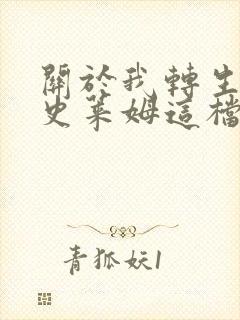 關於我轉生
史萊姆這檔
青狐妖1